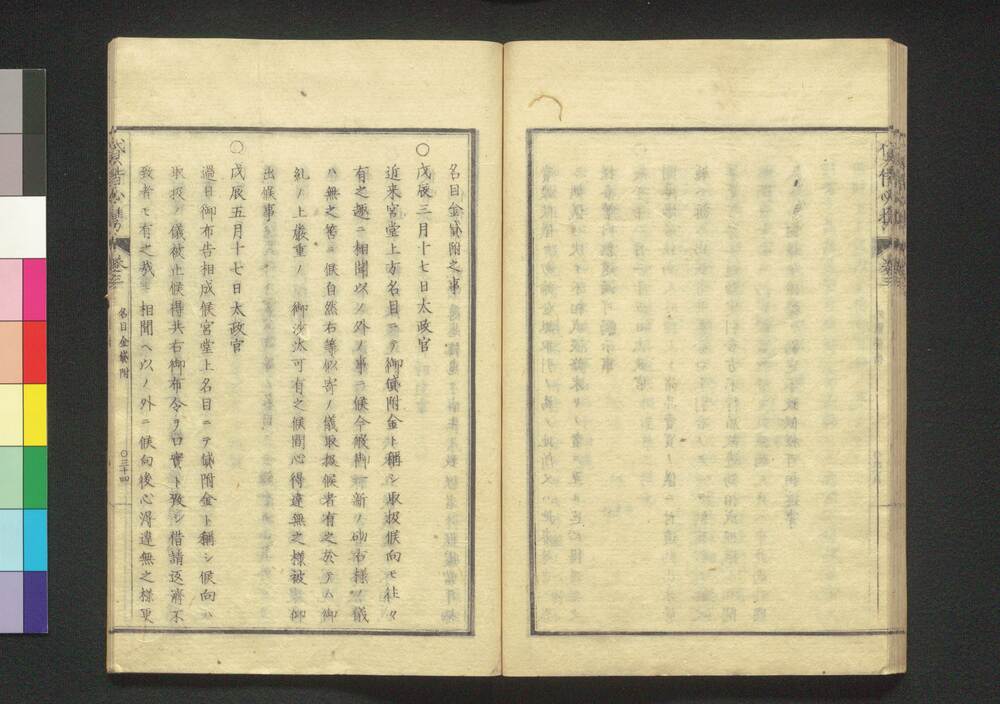 名目金貸附之事
○戊辰三月十七日太政官
近来宮堂上方名目ニテ御貸附金ト称シ取扱候向モ往々
有之趣ニ相聞以ノ外ノ事ニ候今般御一新ノ砌右様ノ儀
ハ無之筈ニ候自然右等似寄ノ儀取扱候者有之於テハ御
糺ノ上厳重ノ 御沙汰可有之候間心得違無之様被 仰
出候事
○戊辰五月十七日太政官
過日御布告相成候宮堂上名目ニテ貸附金ト称シ候向ハ
取扱ノ儀被止候得共右御布令ヲ口実ト致シ借請返済不
致者モ有之哉 相聞ヘ以ノ外ニ候向後心得違無之様更
貸借必携 巻三 名目金貸附 ○三十四